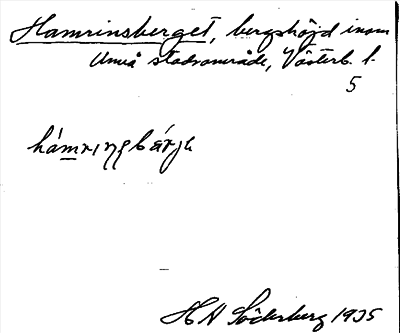 Hamrinsberget, bergshöjd inom
Umeå stadsområde, Västerb. l.
5
H N Söderberg 1935